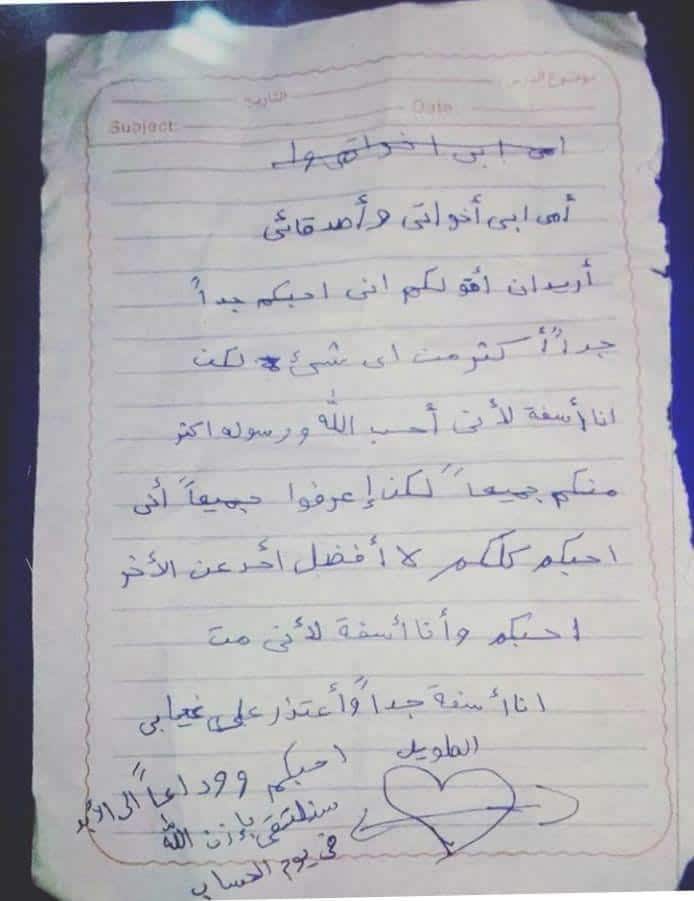 موضوع الدرس
التاريخ
Date
Subject:
امى ابى اخواتى وا
أمى ابى أخواتى وأصدقائى
أريد ان أقولكم انى احبكم جداً
جداً أكثر من اى شئ لكن
انا أسفة لأنى أحب الله ورسوله اكثر
منكم جميعاً لكن إعرفوا جميعاً أنى
احبكم كلكم لا أفضل أحد عن الأخر
احبكم وأنا أسفة لأنى مت
انا أسفة جداً وأعتذر على غيابى
الطويل
احبكم ووداعاً الى الأبد
سنلتقى بإذن الله
فى يوم الحساب